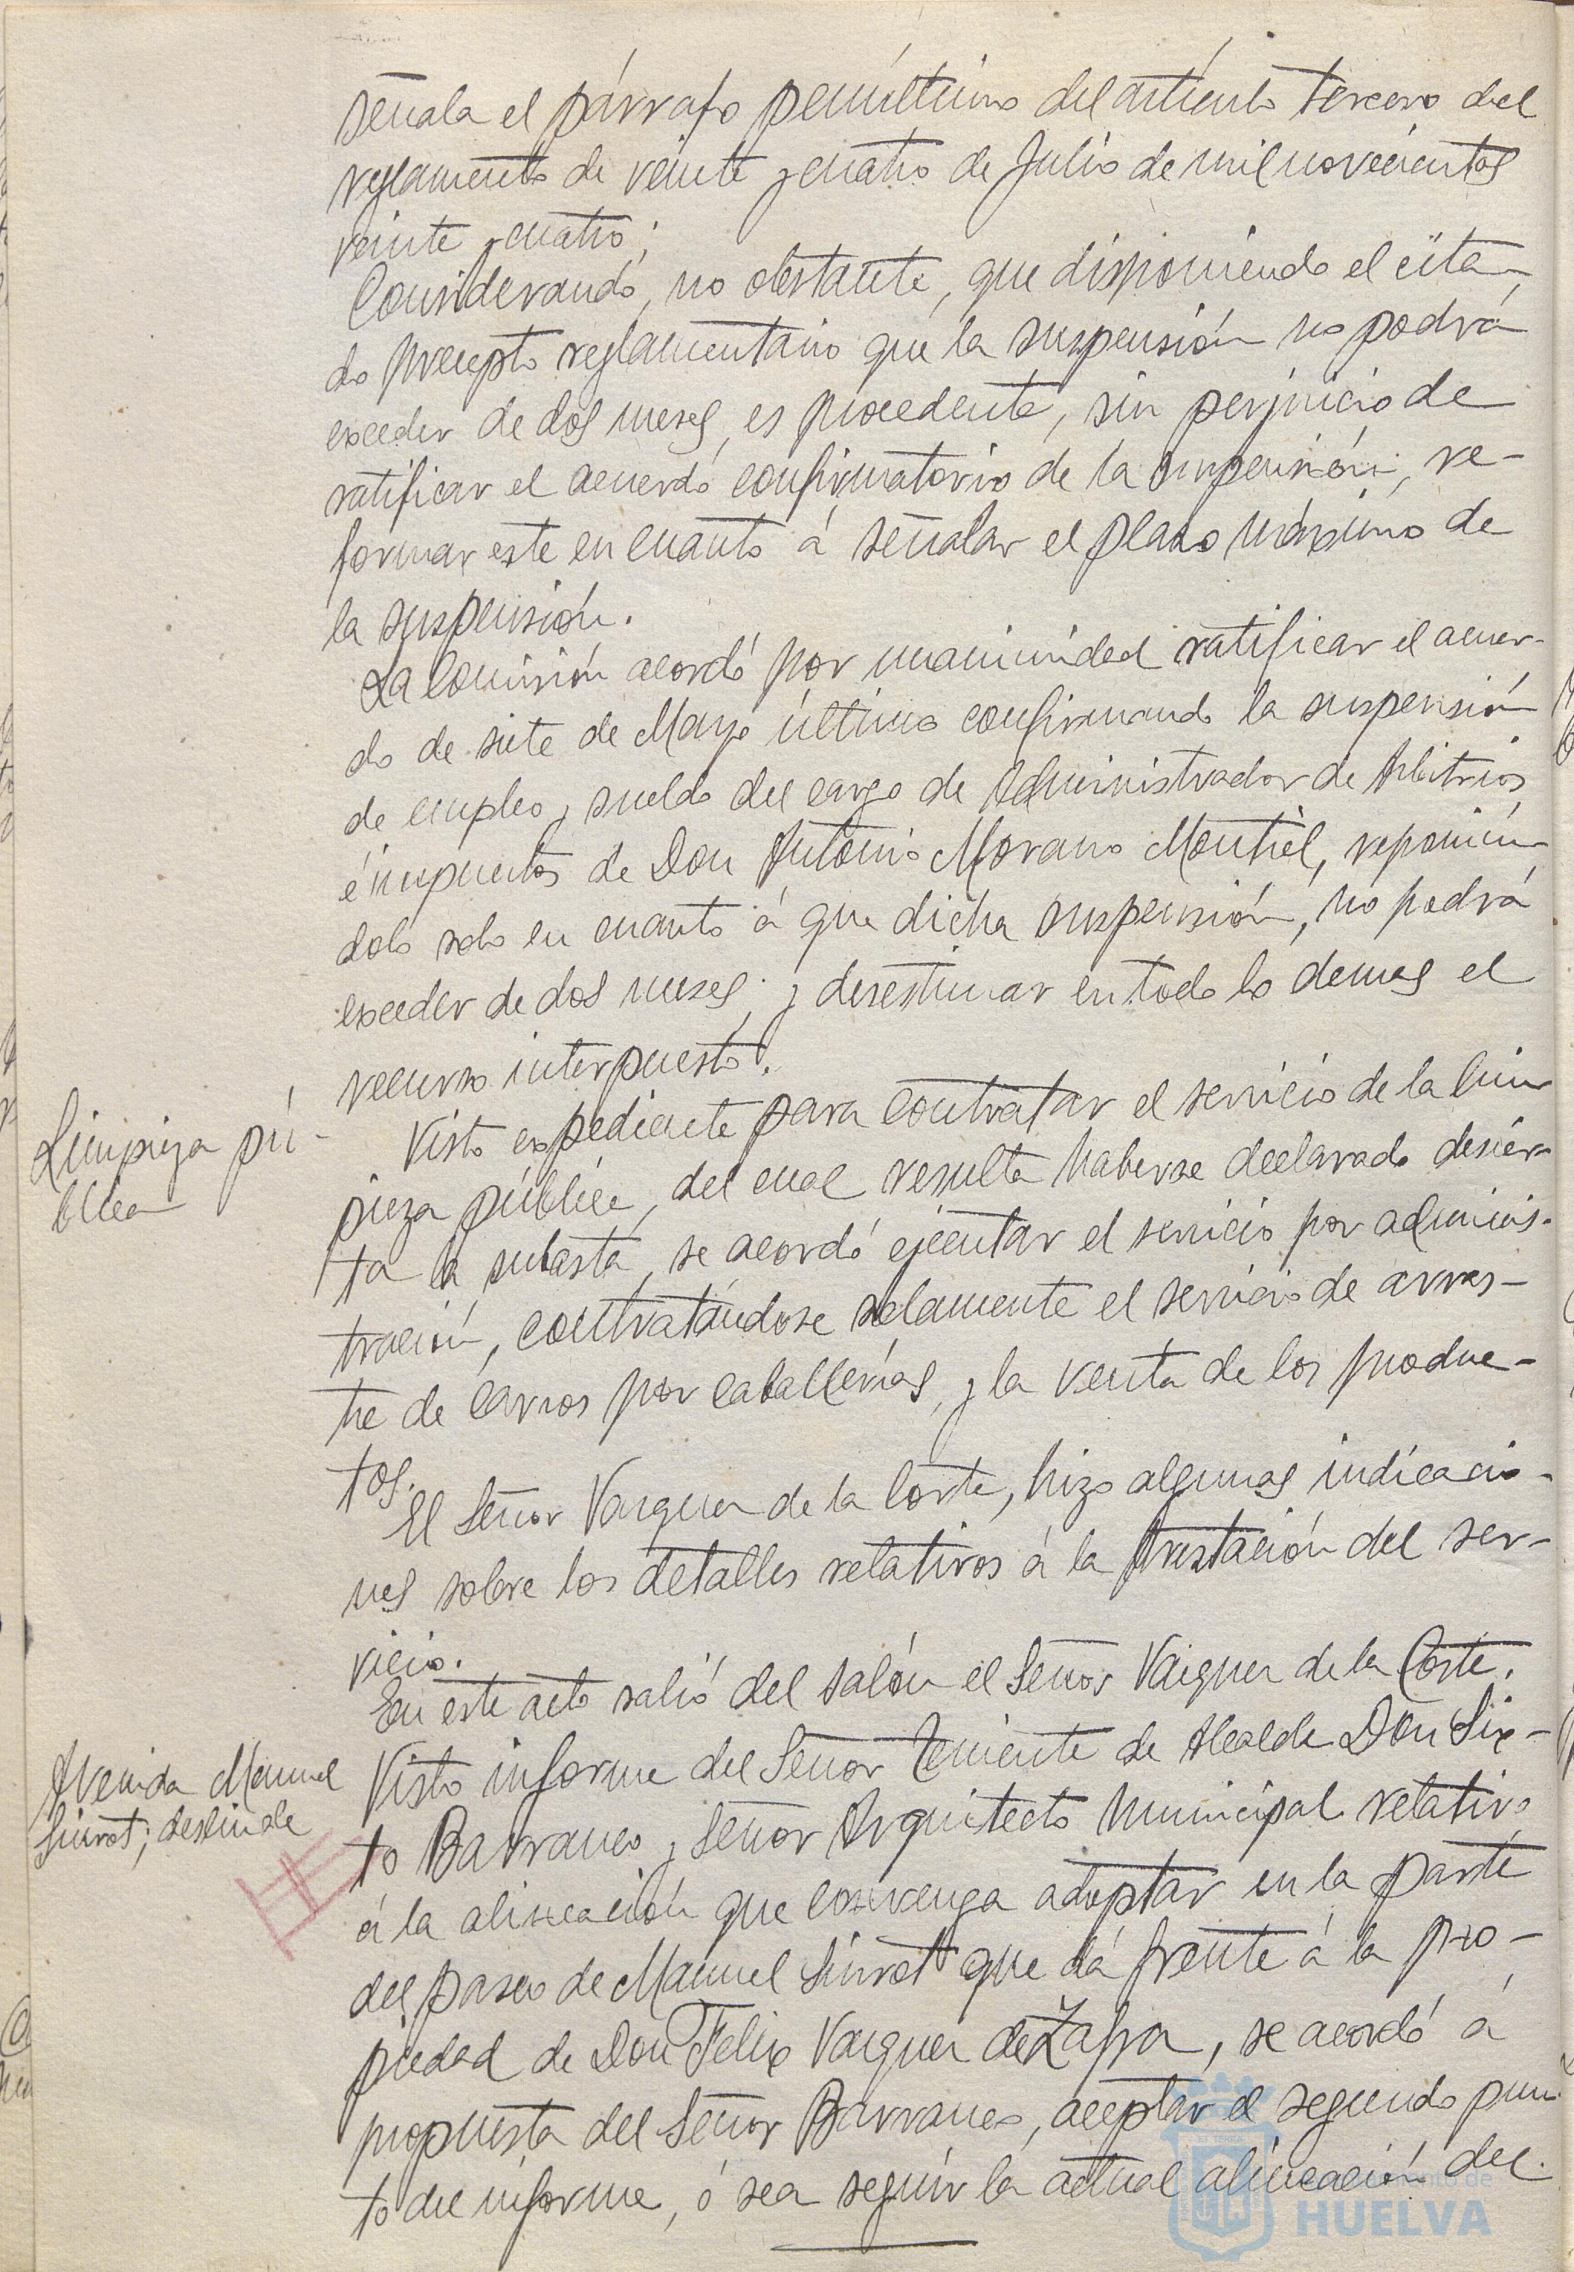 señala el párrafo penúltimo del artículo tercero del
reglamento de veinte y cuatro de Julio de mil novecientos
veinte y cuatro;
Considerando, no obstante, que disponiendo el cita-
do precepto reglamentario que la suspensión no podrá
exceder de dos meses, es procedente, sin perjuicio de
ratificar el acuerdo confirmatorio de la suspensión, re-
formar este en cuanto á señalar el plazo máximo de
la suspensión.
La Comisión acordó por unanimidad ratificar el acuer-
do de siete de Mayo último confirmando la suspensión
de empleo y sueldo del cargo de Administrador de Arbitrios
é impuestos de Don Antonio Morano Montiel, reponién-
dolo solo en cuanto á que dicha suspensión, no podrá
exceder de dos meses; y desestimar en todo lo demas el
recurso interpuesto.
Limpieza pú-
blica
Visto expediente para contratar el servicio de la lim-
pieza pública, del cual resulta haberse declarado desier-
ta la subasta, se acordó ejecutar el servicio por adminis-
tración, contratándose solamente el servicio de arras-
tre de carros por caballerías, y la venta de los produc-
tos.
El Señor Vazquez de la Corte, hizo algunas indicacio-
nes sobre los detalles relativos á la prestación del ser-
vicio.
En este acto salió del salón el Señor Vazquez de la Corte.
Avenida Manuel
Siurot; deslinde
Visto informe del Señor Teniente de Alcalde Don Six-
to Barranco y Señor Arquitecto Municipal relativo
á la alineación que convenga adoptar en la parte
del paseo de Manuel Siurot que dá frente á la pro-
piedad de Don Felix Vazquez de Zafra, se acordó á
propuesta del Señor Barranco, aceptar el segundo pun-
to del informe, ó sea seguir la actual alineación del
HUELVA